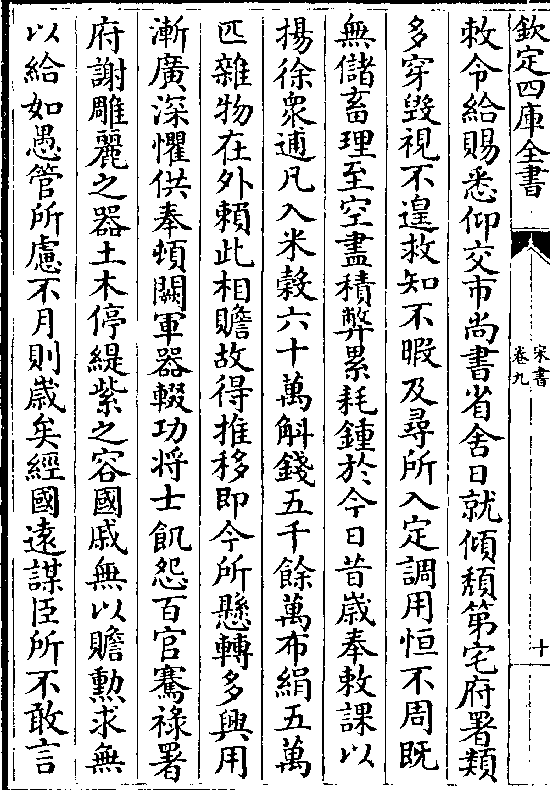 欽定四庫全書
宋書
卷九
十
敕令給賜悉仰交市尚書省舍日就傾頹第宅府署類
多穿毀視不遑救知不暇及尋所入定調用恒不周既
無儲畜理至空盡積弊累耗鍾於今日昔嵗奉敕課以
揚徐衆逋凡入米榖六十萬斛錢五千餘萬布絹五萬
匹雜物在外賴此相贍故得推移即今所懸轉多興用
漸廣深懼供奉頓闕軍器輟功將士飢怨百官騫祿署
府謝雕麗之器土木停緹紫之容國戚無以贍勲求無
以給如愚管所慮不月則嵗矣經國遠謀臣所不敢言